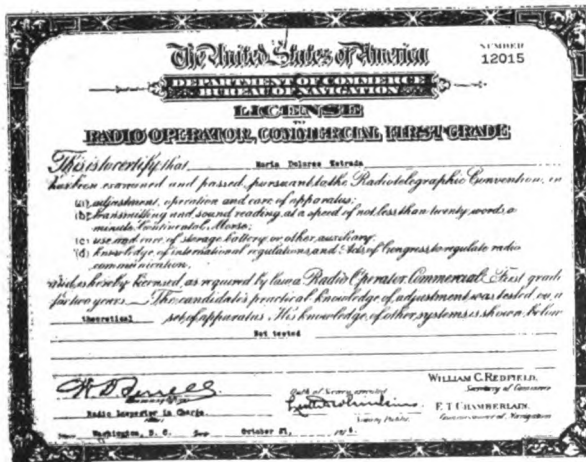 The United States of America
NUMBER
12015
DEPARTMENT OF COMMERCE
BUREAU OF NAVIGATION
LICENSE
TO
RADIO OPERATOR, COMMERCIAL FIRST GRADE
This is to certify that Maria Dolores Estrada
has been examined and passed, pursuant to the Radiotelegraphic Convention, in
(a) adjustment, operation and care of apparatus;
(b) transmitting and sound reading at a speed of not less than twenty words a
minute Continental Morse;
(c) use and care of storage battery or other auxiliary;
(d) knowledge of international regulations and Acts of Congress to regulate radio
communication,
and is hereby licensed, as required by law a Radio Operator, Commercial First grade
for two years. The candidate's practical knowledge of adjustment was tested on a
theoretical set of apparatus. His knowledge of other systems is shown below
Not tested
WILLIAM C. REDFIELD,
Secretary of Commerce
Oath of Secrecy executed
Radio Inspector in Charge.
Notary Public
E T CHAMBERLAIN,
Commissioner of Navigation
Washington, D. C. October 21,